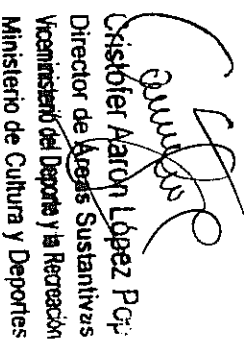 Cristofer Aarón López Pop
Director de Áreas Sustantivas
Viceministerio del Deporte y la Recreación
Ministerio de Cultura y Deportes